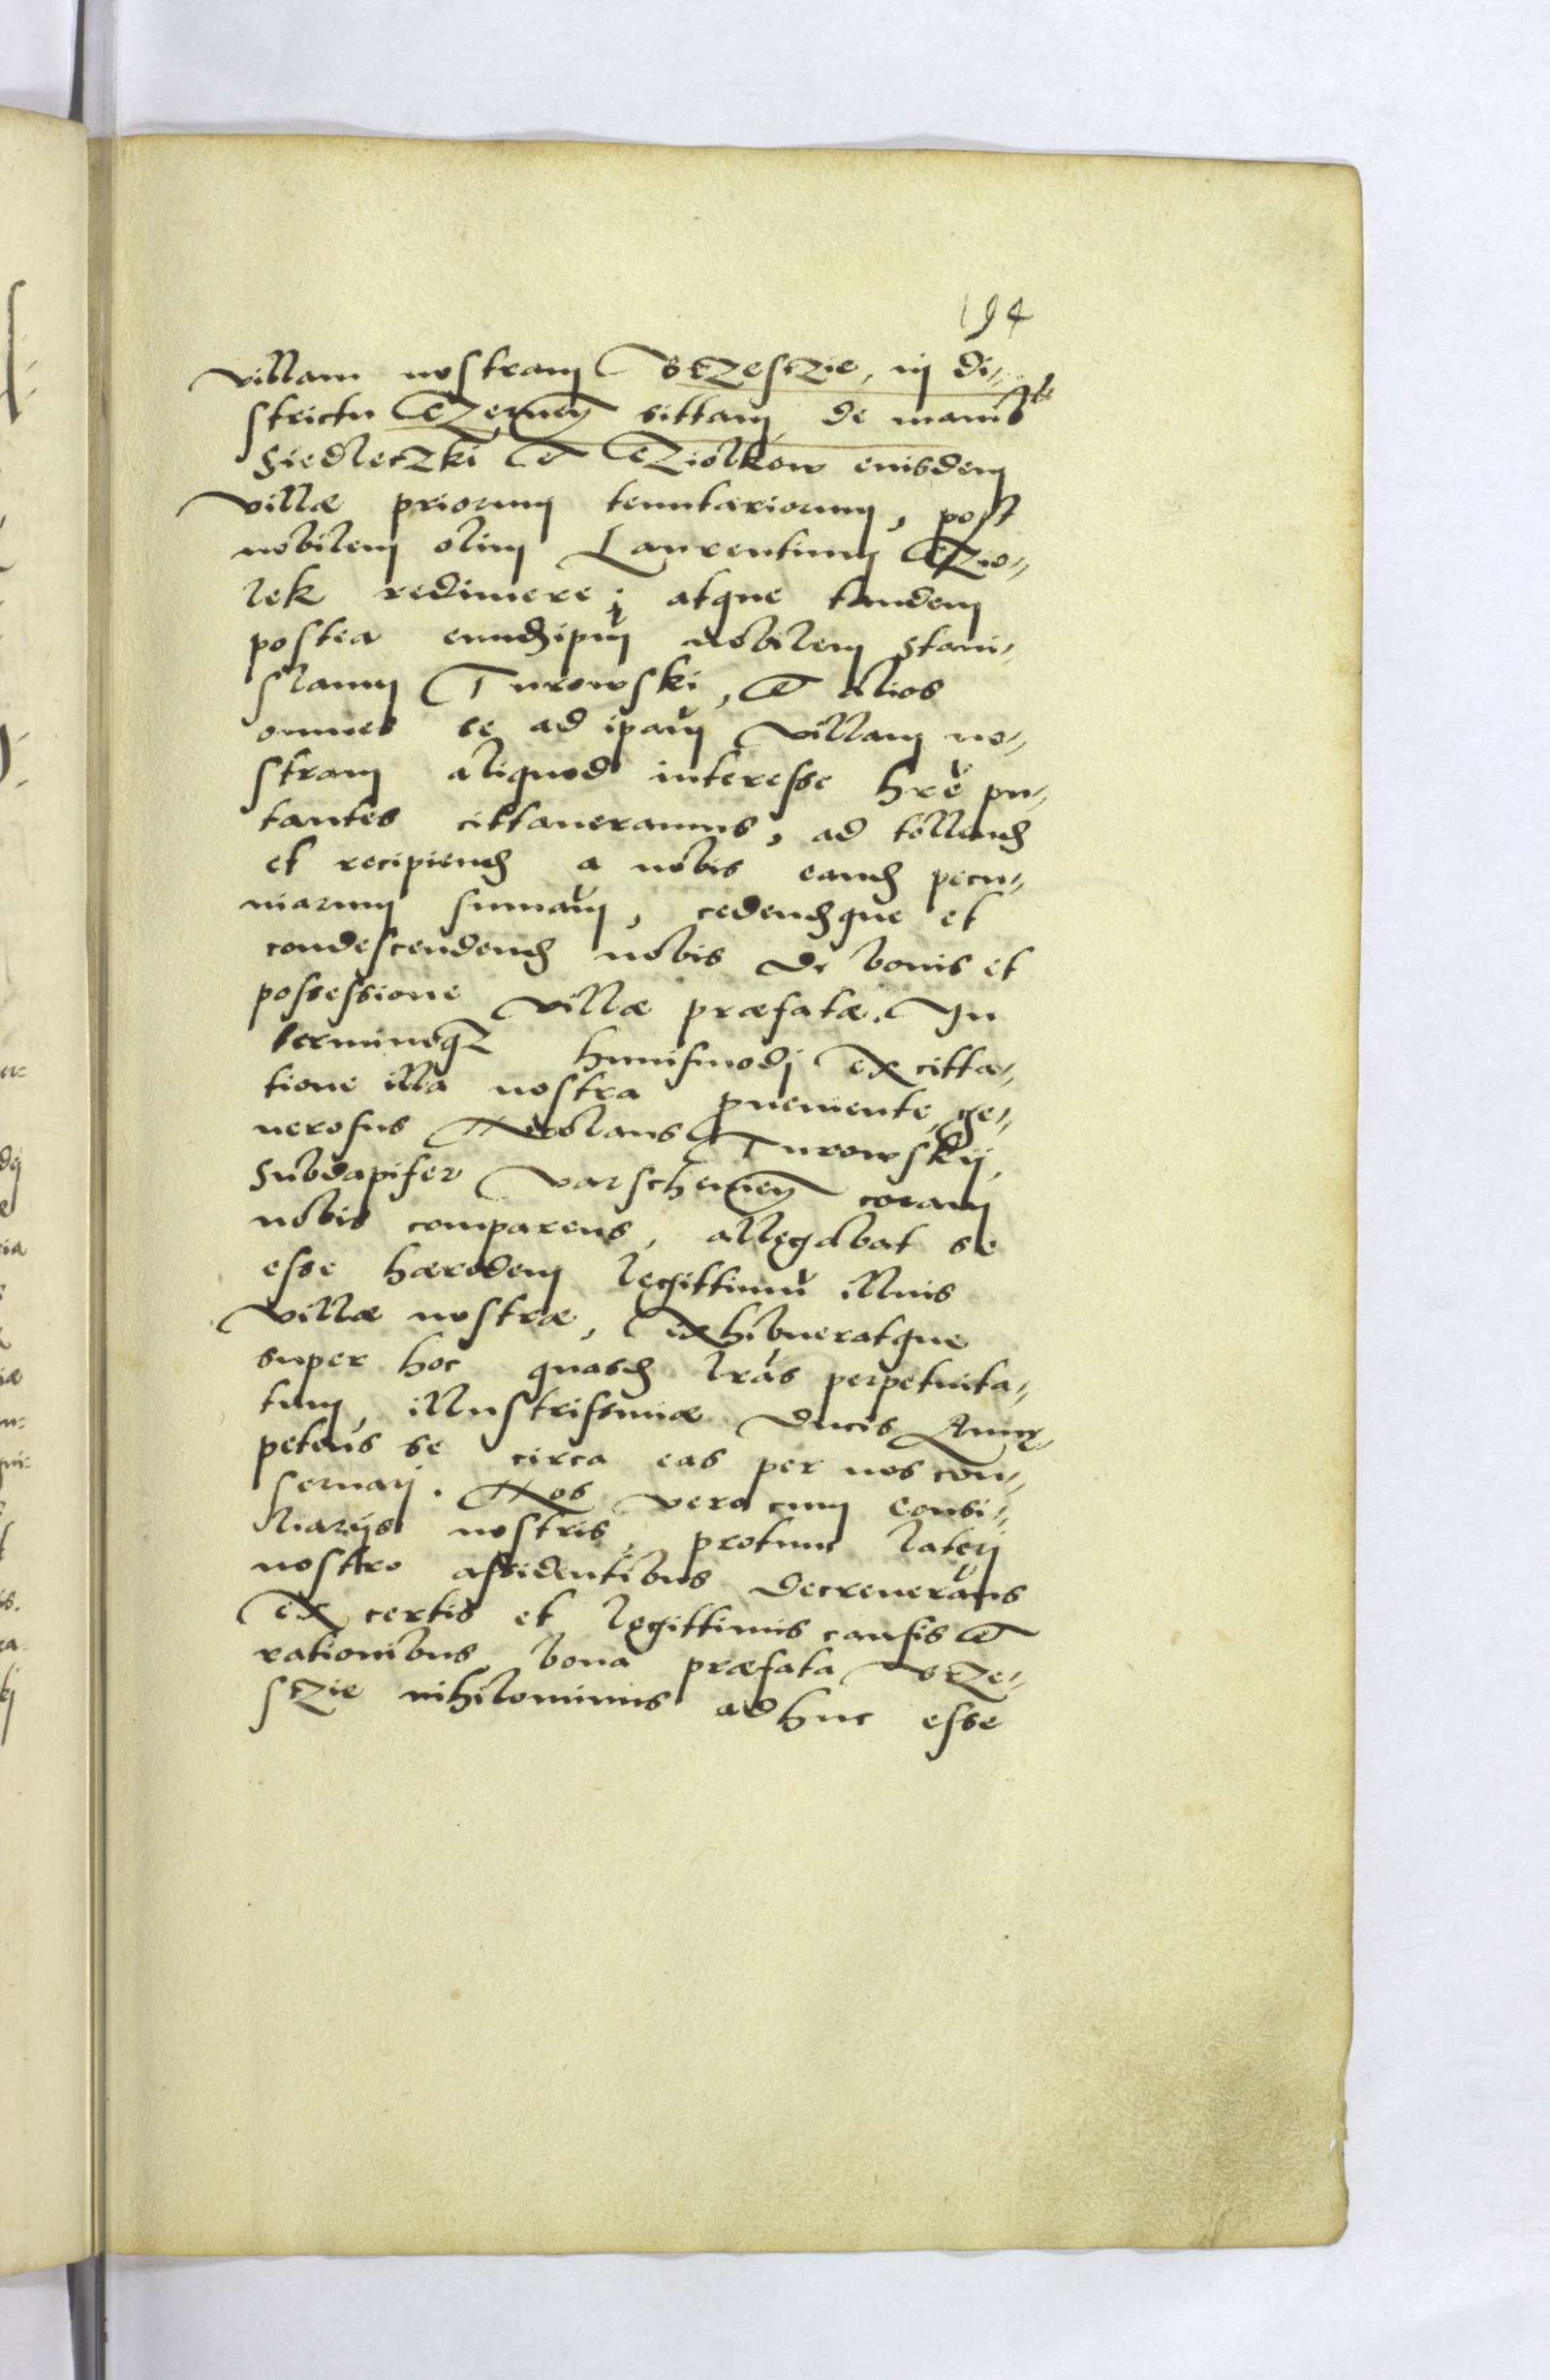 194
villam nostram Uszeszie, in di-
strictu Czernen sittam de manibus
Siedleczki et Cziolkow eiusdem
villæ priorum tenutariorum, post
nobilem olim Laurentium Czio-
lek redimere; atque tandem
postea eundem ipsum nobilem Stani-
slaum Turowski, et alios
omnes se ad ipsam villam no-
stram aliquod interesse hrẽ pu-
tantes cittaueramus, ad tollend
et recipiend a nobis eand pecu-
niarum sumam, cedendque et
condescendend nobis de bonis et
possessione villæ præfatæ. In
terminoq huiusmodj ex citta-
tione illa nostra proueniente, ge-
nerosus Nicolaus Turowskij,
Subdapifer Varschewien coram
nobis comparens, allegabat se
esse hæredem legittimũ illius
villæ nostræ, exhibueratque
super hoc quasd lras perpetuita-
tum, illustrissimæ Ducis Annæ,
petens se circa eas per nos con-
seruarj. Nos vero cum consi-
liarijs nostris, protunc laterj
nostro assidentibus decreueramus
ex certis et legittimis causis et
rationibus, bona præfata Usze-
szie nihilominus adhuc esse